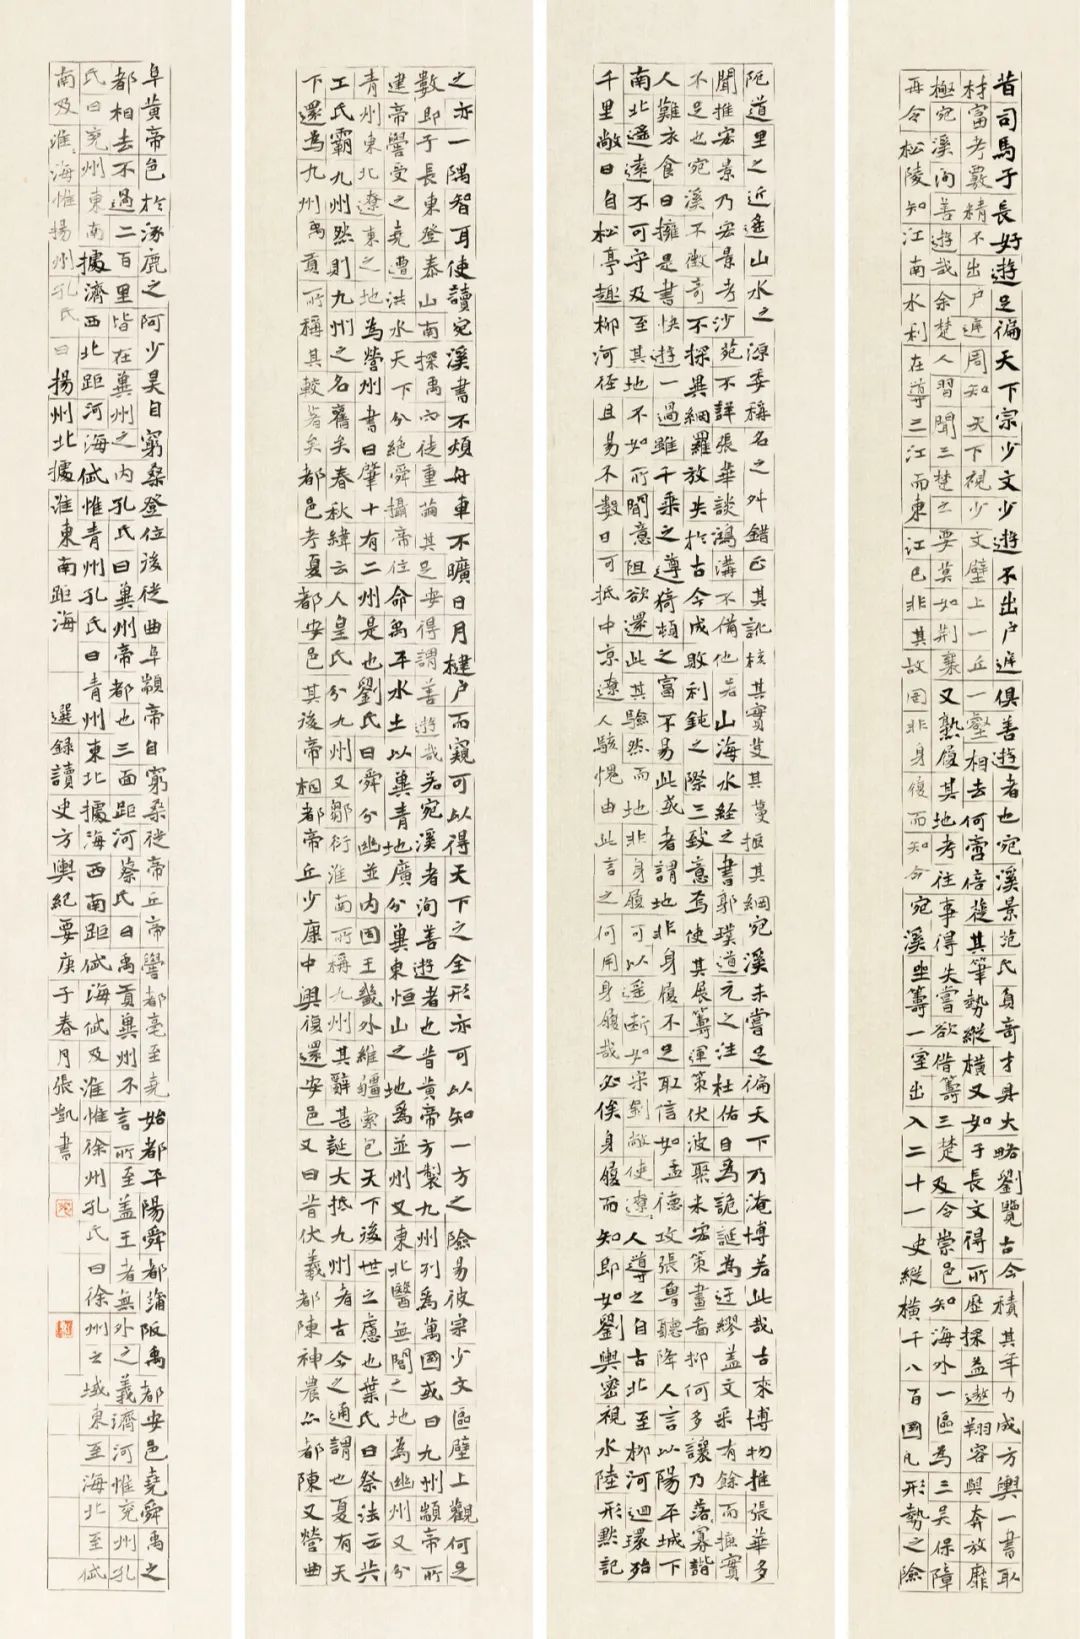 昔司馬子長好遊足徧天下宗少文少遊不出户遅俱善遊者也宛溪景范氏負奇才具大略劉覽古今積其年力成方輿一書取
材富考覈精不出户遅周知天下視少文壁上一丘一壑相去何啻倍蓰其筆勢縱橫又如子長文得所歷探益遨翔容與奔放靡
極宛溪洵善遊哉余楚人習聞三楚之要莫如荆襄又熟履其地考往事得失嘗欲借籌三楚及令崇邑知海外一區為三吴保障
再令松陵知江南水利在導三江而東江已非其故囙非身履而知今宛溪坐籌一室出入二十一史縱橫千八百國凡形勢之險
阨道里之近遥山水之源委稱名之舛錯正其訛核其實芟其蔓振其綱宛溪未嘗足徧天下乃淹博若此哉古來博物推張華多
聞推宏景乃宏景考沙苑不詳張華談鴻溝不備他若山海水經之書郭璞道元之注杜佑目為詭誕為迂繆蓋文采有餘而摭實
不足也宛溪不徵奇不探異網羅放失於古今成敗利鈍之際三致意焉使其展籌運策伏波聚米宏策畫畨抑何多讓乃落寡諧
人難衣食日擁是書快遊一過雖千乘之尊猗頓之富不易此或者謂地非身履不足取信如孟德攻張魯聽降人言以陽平城下
南北遥遠不可守及至其地不如所聞意阻欲還此其驗然而地非身履可以遥断如宋劉敞使遼人導之自古北至柳河迴環殆
千里敞曰自松亭趣柳河徑且易不數日可抵中京遼人駭愧由此言之何用身履哉必俟身履而知即如劉輿密視水陸形黙記
之亦一隅智耳使讀宛溪書不煩舟車不曠日月楗户而窺可以得天下之全形亦可以知一方之險易彼宗少文區壁上觀何足
數即子長東登泰山南探禹穴徒重繭其足安得謂善遊哉若宛溪者洵善遊者也昔黄帝方製九州列爲萬國或曰九州顓帝所
建帝嚳受之堯遭洪水天下分絶舜攝帝位命禹平水土以冀青地廣分冀東恒山之地爲並州又東北醫無閭之地為幽州又分
青州東北遼東之地為營州書曰肇十有二州是也劉氏曰舜分幽並内固王畿外維疆索包天下後世之慮也葉氏曰祭法云共
工氏霸九州然則九州之名舊矣春秋緯云人皇氏分九州又鄒衍淮南所稱九州其辭甚誕大抵九州者古今之通謂也夏有天
下還為九州禹貢所稱其較著矣都邑考夏都安邑其後帝相都帝丘少康中興復還安邑又曰昔伏羲都陳神農亦都陳又營曲
阜黄帝邑於涿鹿之阿少昊自窮桑登位後徙曲阜顓帝自窮桑徙帝丘帝嚳都亳至堯始都平陽舜都蒲阪禹都安邑堯舜禹之
都相去不過二百里皆在冀州之内孔氏曰冀州帝都也三面距河蔡氏曰禹貢冀州不言所至蓋王者無外之義濟河惟兖州孔
氏曰兖州東南據濟西北距河海岱惟青州孔氏曰青州東北據海西南距岱海岱及淮惟徐州孔氏曰徐州之域東至海北至岱
南及淮淮海惟揚州孔氏曰揚州北據淮東南距海　選録讀史方輿紀要庚子春月張凱書